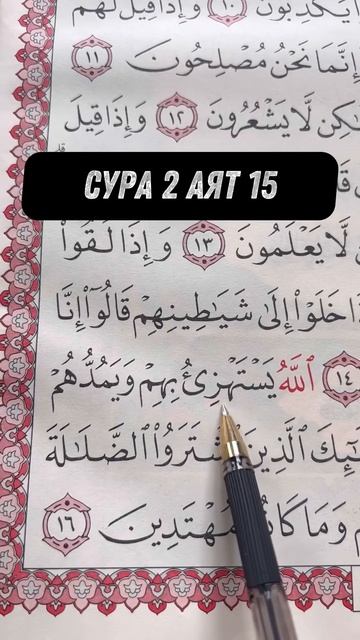 يَكْذِبُونَ ١٠ وَإِذَا قِيلَ لَهُمْ
إِنَّمَا نَحْنُ مُصْلِحُونَ ١١
كِن لَّا يَشْعُرُونَ ١٢ وَإِذَا قِيلَ
СУРА 2 АЯТ 15
لَّا يَعْلَمُونَ ١٣ وَإِذَا لَقُوا۟
خَلَوْا۟ إِلَىٰ شَيَٰطِينِهِمْ قَالُوٓا۟ إِنَّا
١٤ ٱللَّهُ يَسْتَهْزِئُ بِهِمْ وَيَمُدُّهُمْ
ئِكَ ٱلَّذِينَ ٱشْتَرَوُا۟ ٱلضَّلَٰلَةَ
وَمَا كَانُوا۟ مُهْتَدِينَ ١٦